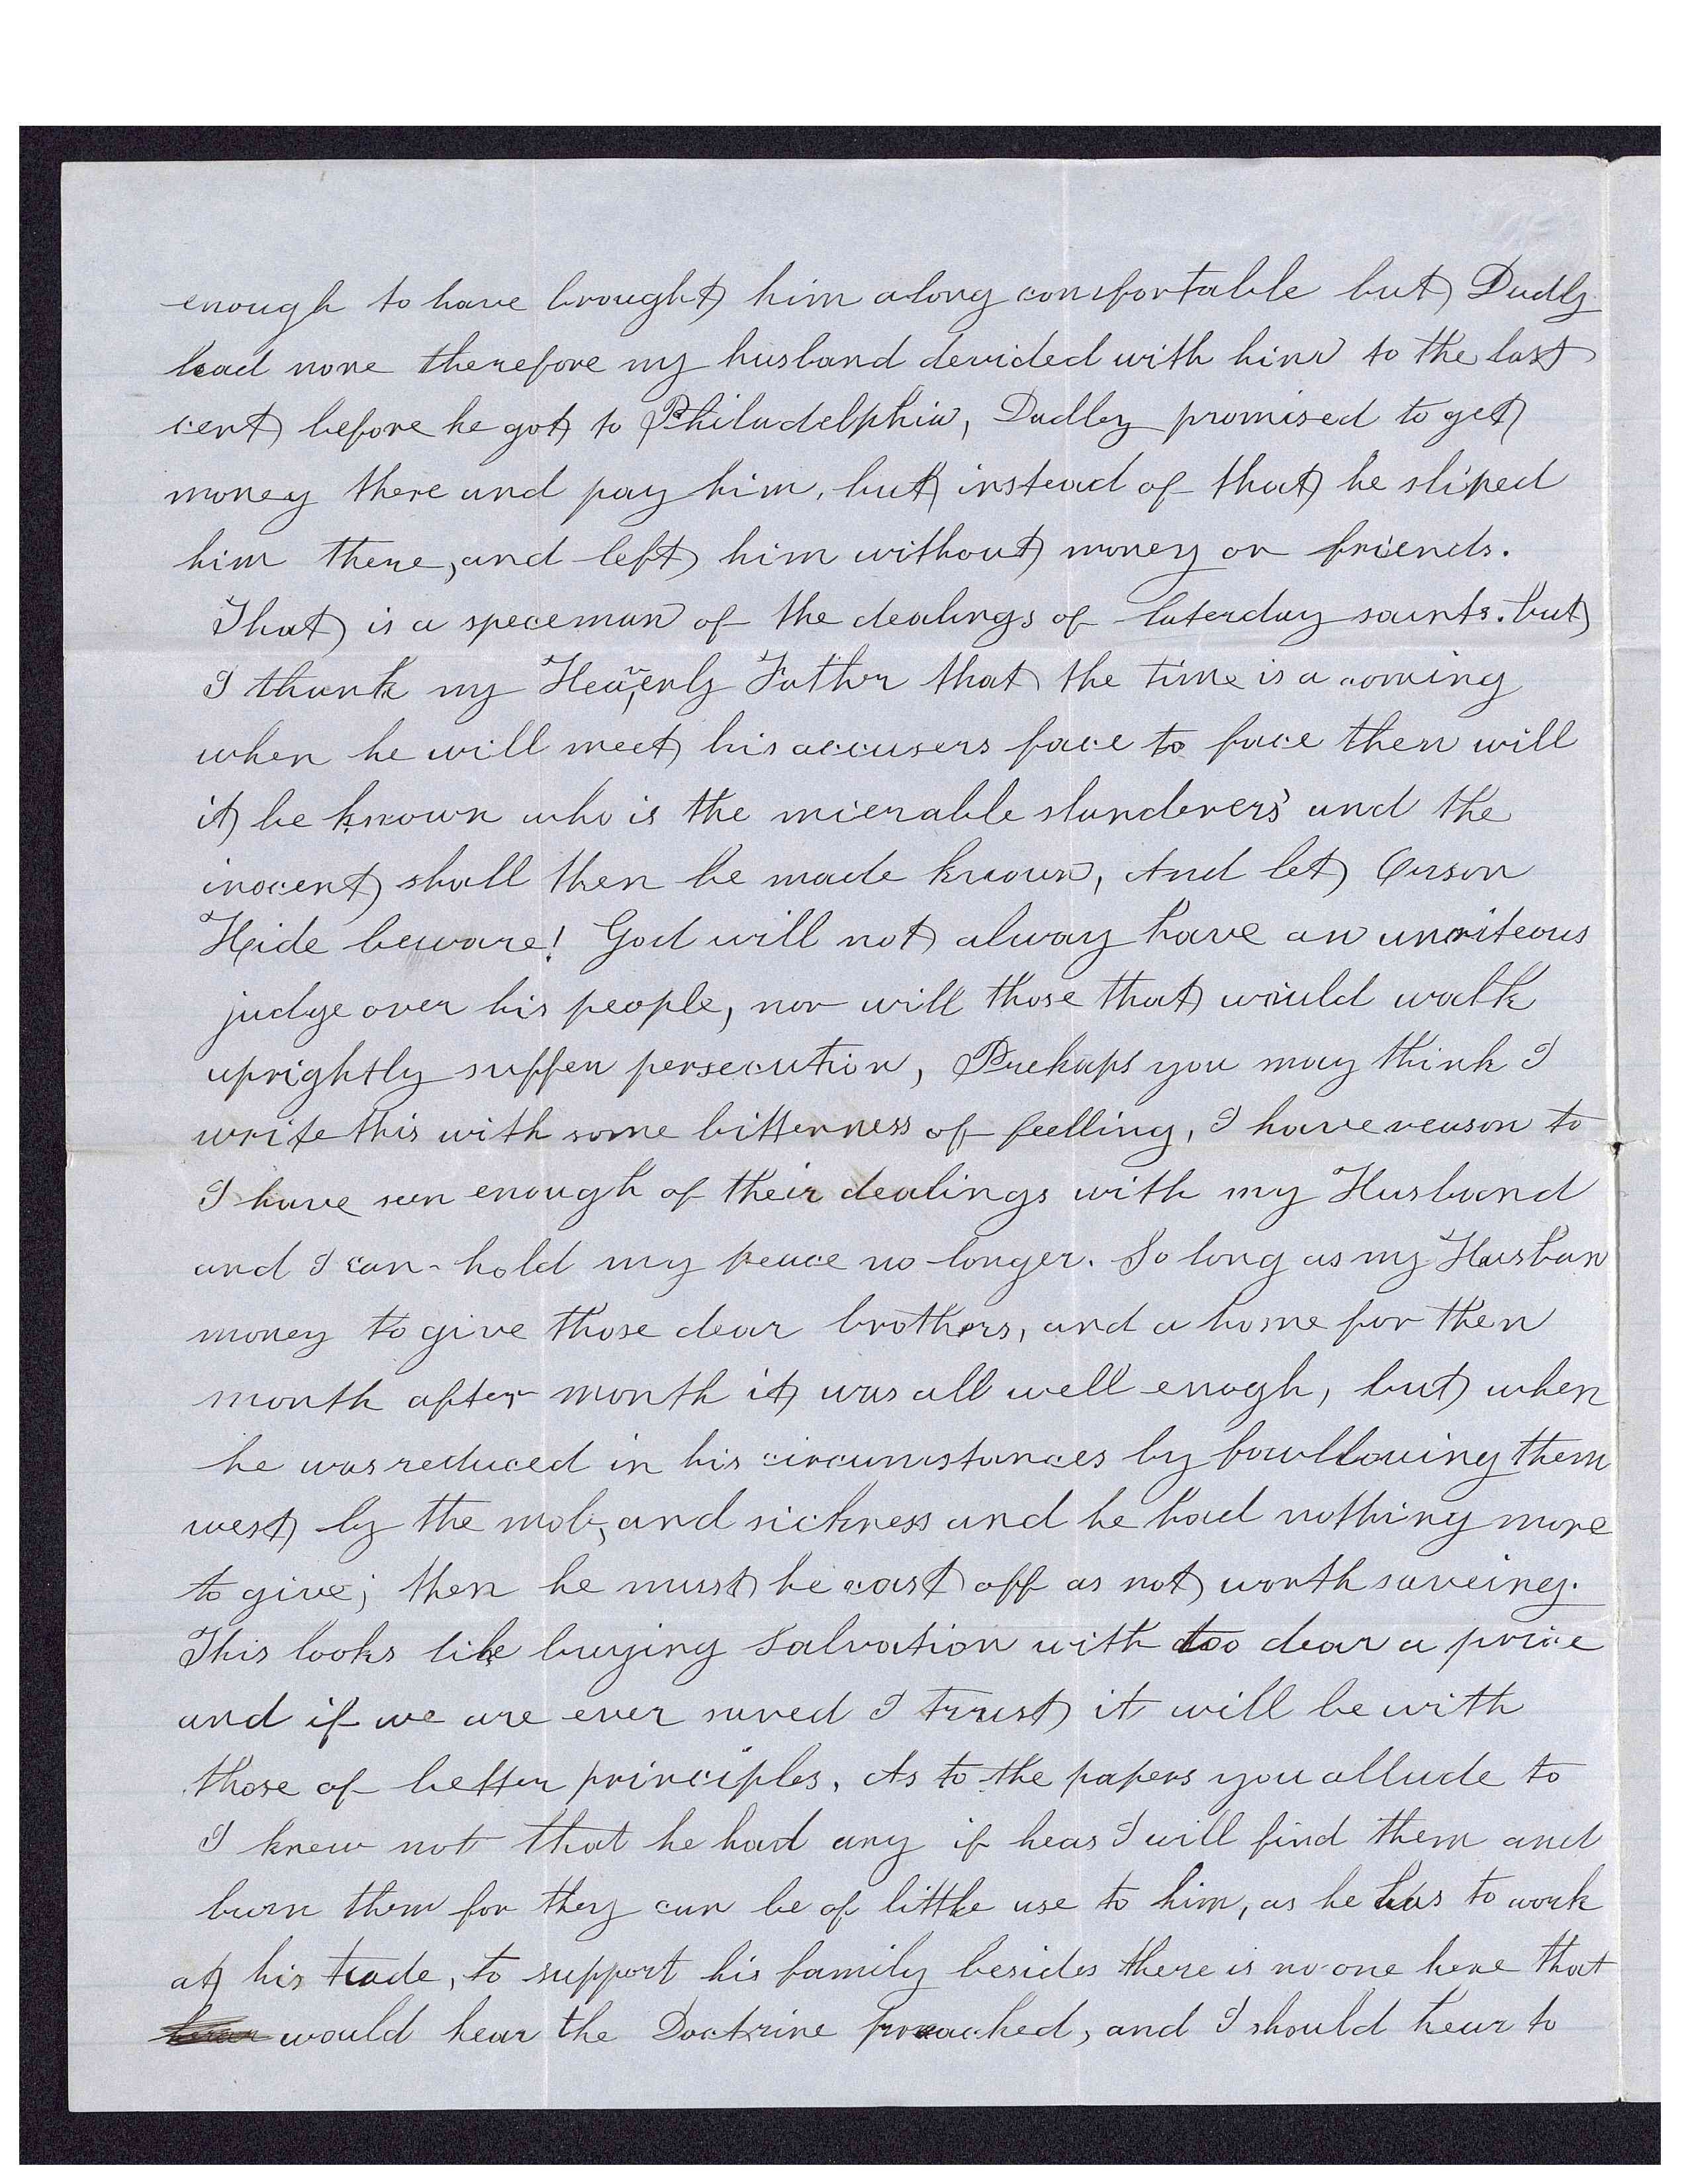 enough to have brought him along comfortable but Dudly
had none therefore my husband devided with him to the last
cent before he got to Philadelphia, Dudley promised to get
money there and pay him, but instead of that he sliped
him there, and left him without money or friends.
That is a speceman of the dealings of laterday saints. but
I thank my Heavenly Father that the time is a coming
when he will meet his accusers face to face then will
it be known who is the mierable slanderers and the
inocent shall then be made known, And let Orson
Hide beware! God will not alway have an unriteous
judge over his people, nor will those that would walk
uprightly suffer persecution, Puehaps you may think I
write this with some bitterness of feelling, I have reason to
I have seen enough of their dealings with my Husband
and I can hold my peace no longer. So long as my Husban
money to give those dear brothers, and a home for then
month after month it was all well enogh, but when
he was reduced in his circumstances by fowllowing them
west by the mob, and sickness and he had nothing more
to give; then he must be cast off as not worth saveing.
This looks like buying Salvation with too dear a price
and if we are ever saved I trust it will be with
those of better principles, As to the papers you allude to
I knew not that he had any if heas I will find them and
burn them for they can be of little use to him, as he has to work
at his trade, to support his family besides there is no one here that
would hear the Doctrine preached, and I should hear to